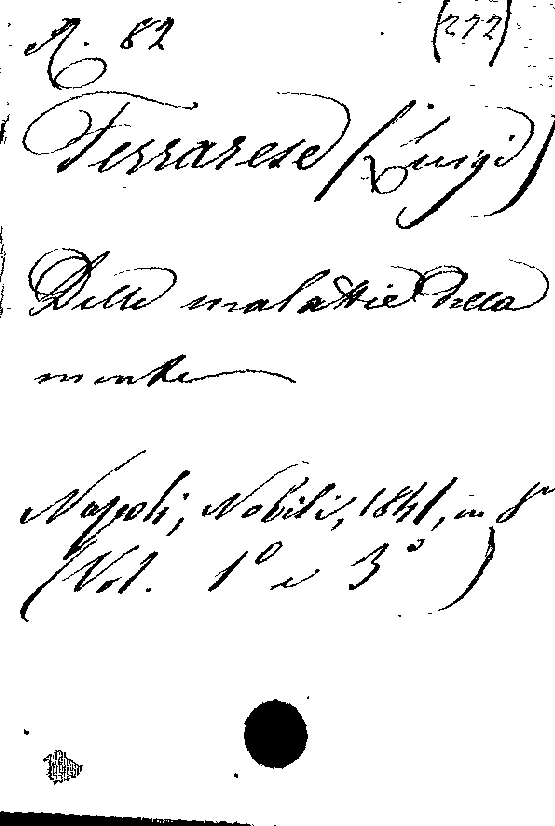 A. 82 (272)
Ferrarese (Luigi)
Delle malattie della
mente
Napoli, Nobili, 1841, in 8º
(Vol. 1º e 3º)